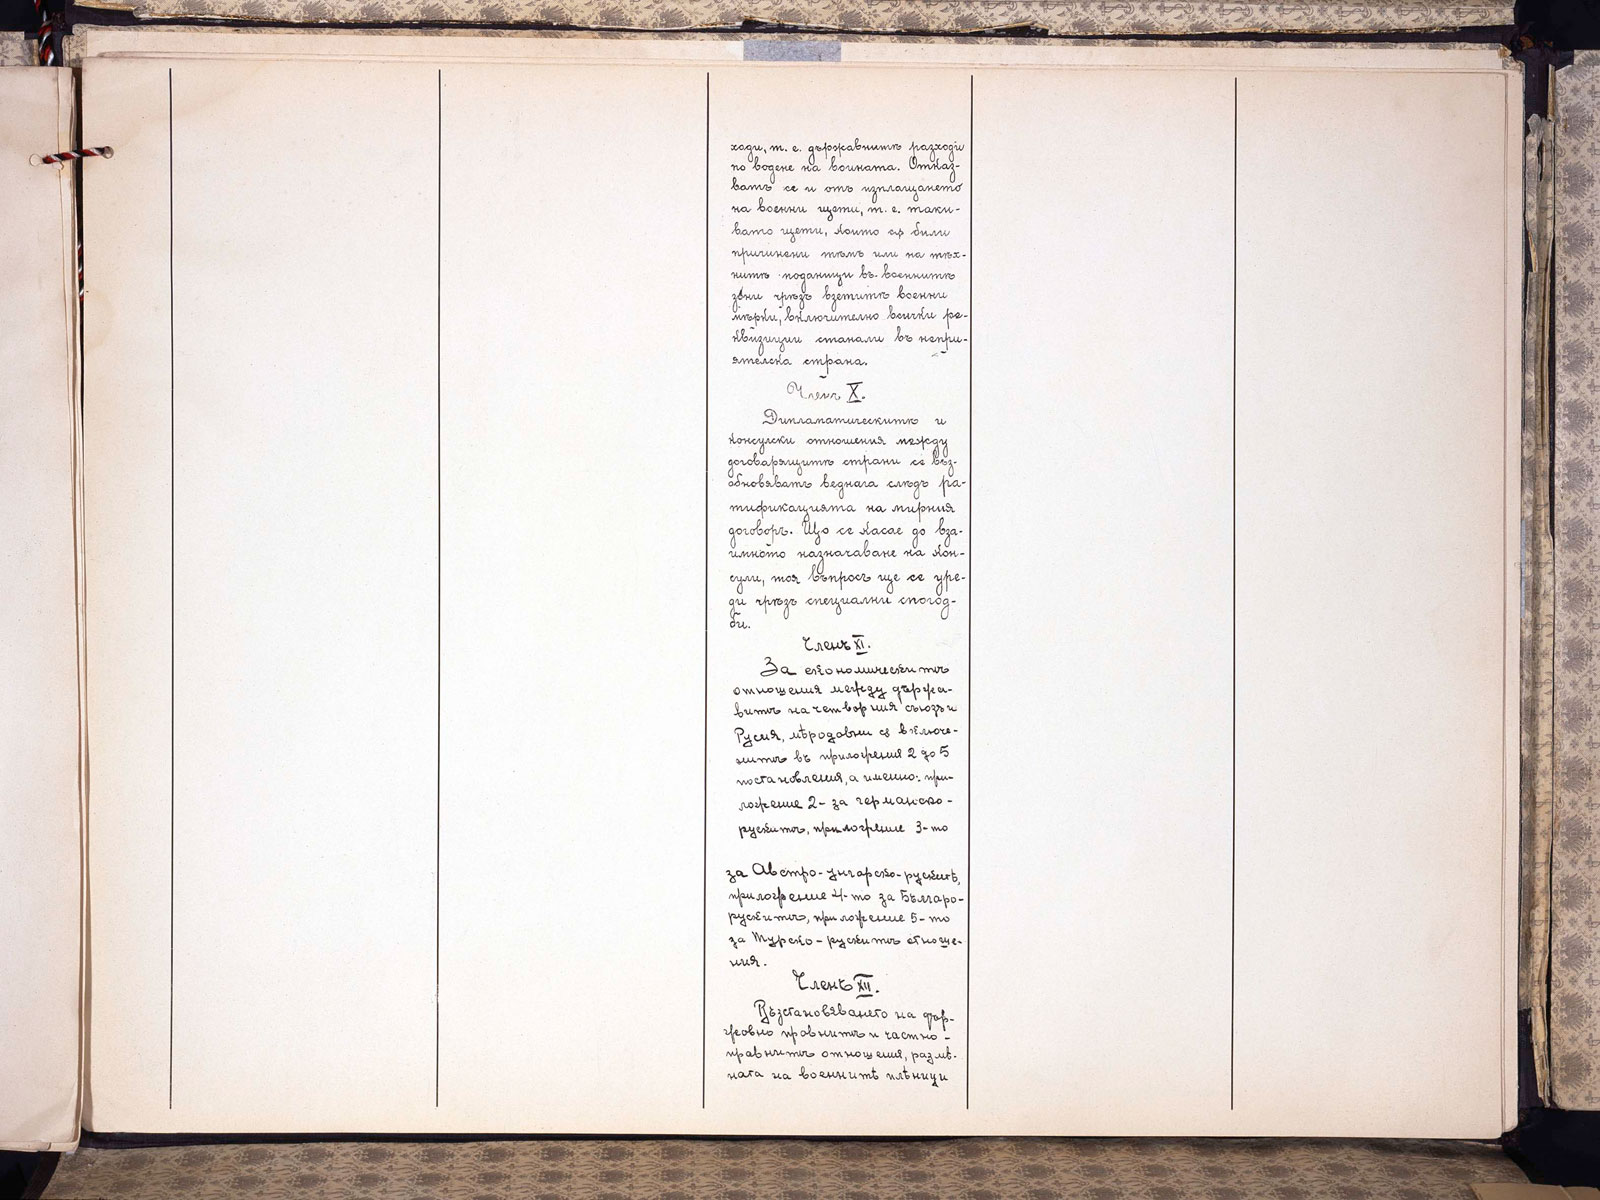 ходи, т. е. държавнитѣ разходи
по водене на войната. Отказ-
ватъ се и отъ изплащането
на военни щети, т. е. таки-
вато щети, които сѫ били
причинени тѣмъ или на тѣх-
нитѣ поданици въ военнитѣ
зони чрѣзъ взетитѣ военни
мѣрки, включително всички ре-
квизиции станали въ непри-
ятелска страна.
Членъ X.
Дипламатическитѣ и
консулски отношения между
договарящитѣ страни се въз-
обновяватъ веднага слѣдъ ра-
тификацията на мирния
договоръ. Що се касае до вза-
имното назначаване на кон-
сули, тоя въпросъ ще се уре-
ди чрѣзъ специални спогод-
би.
Членъ XI.
За економическитѣ
отношения между държа-
витѣ на четворния съюзъ и
Русия, мѣродавни сѫ включе-
нитѣ въ приложения 2 до 5
постановления, а именно: при-
ложение 2- за германско-
рускитѣ, приложение 3-то
за Австро-унгарско-рускитѣ,
приложение 4-то за Българо-
рускитѣ, приложение 5-то
за Турско-рускитѣ отноше-
ния.
Членъ XII.
Възстановяването на дър-
жавно правнитѣ и частно-
правнитѣ отношения, размѣ-
ната на военнитѣ плѣници